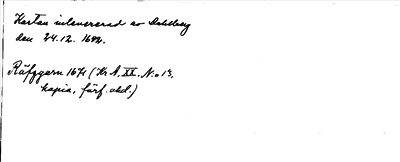 Kartan inlevererad av Dahlberg
den 24.12. 1692.
Räfzgarn 1671 (Kr A. XX. N:o 13,
kopia, förf. okd.)